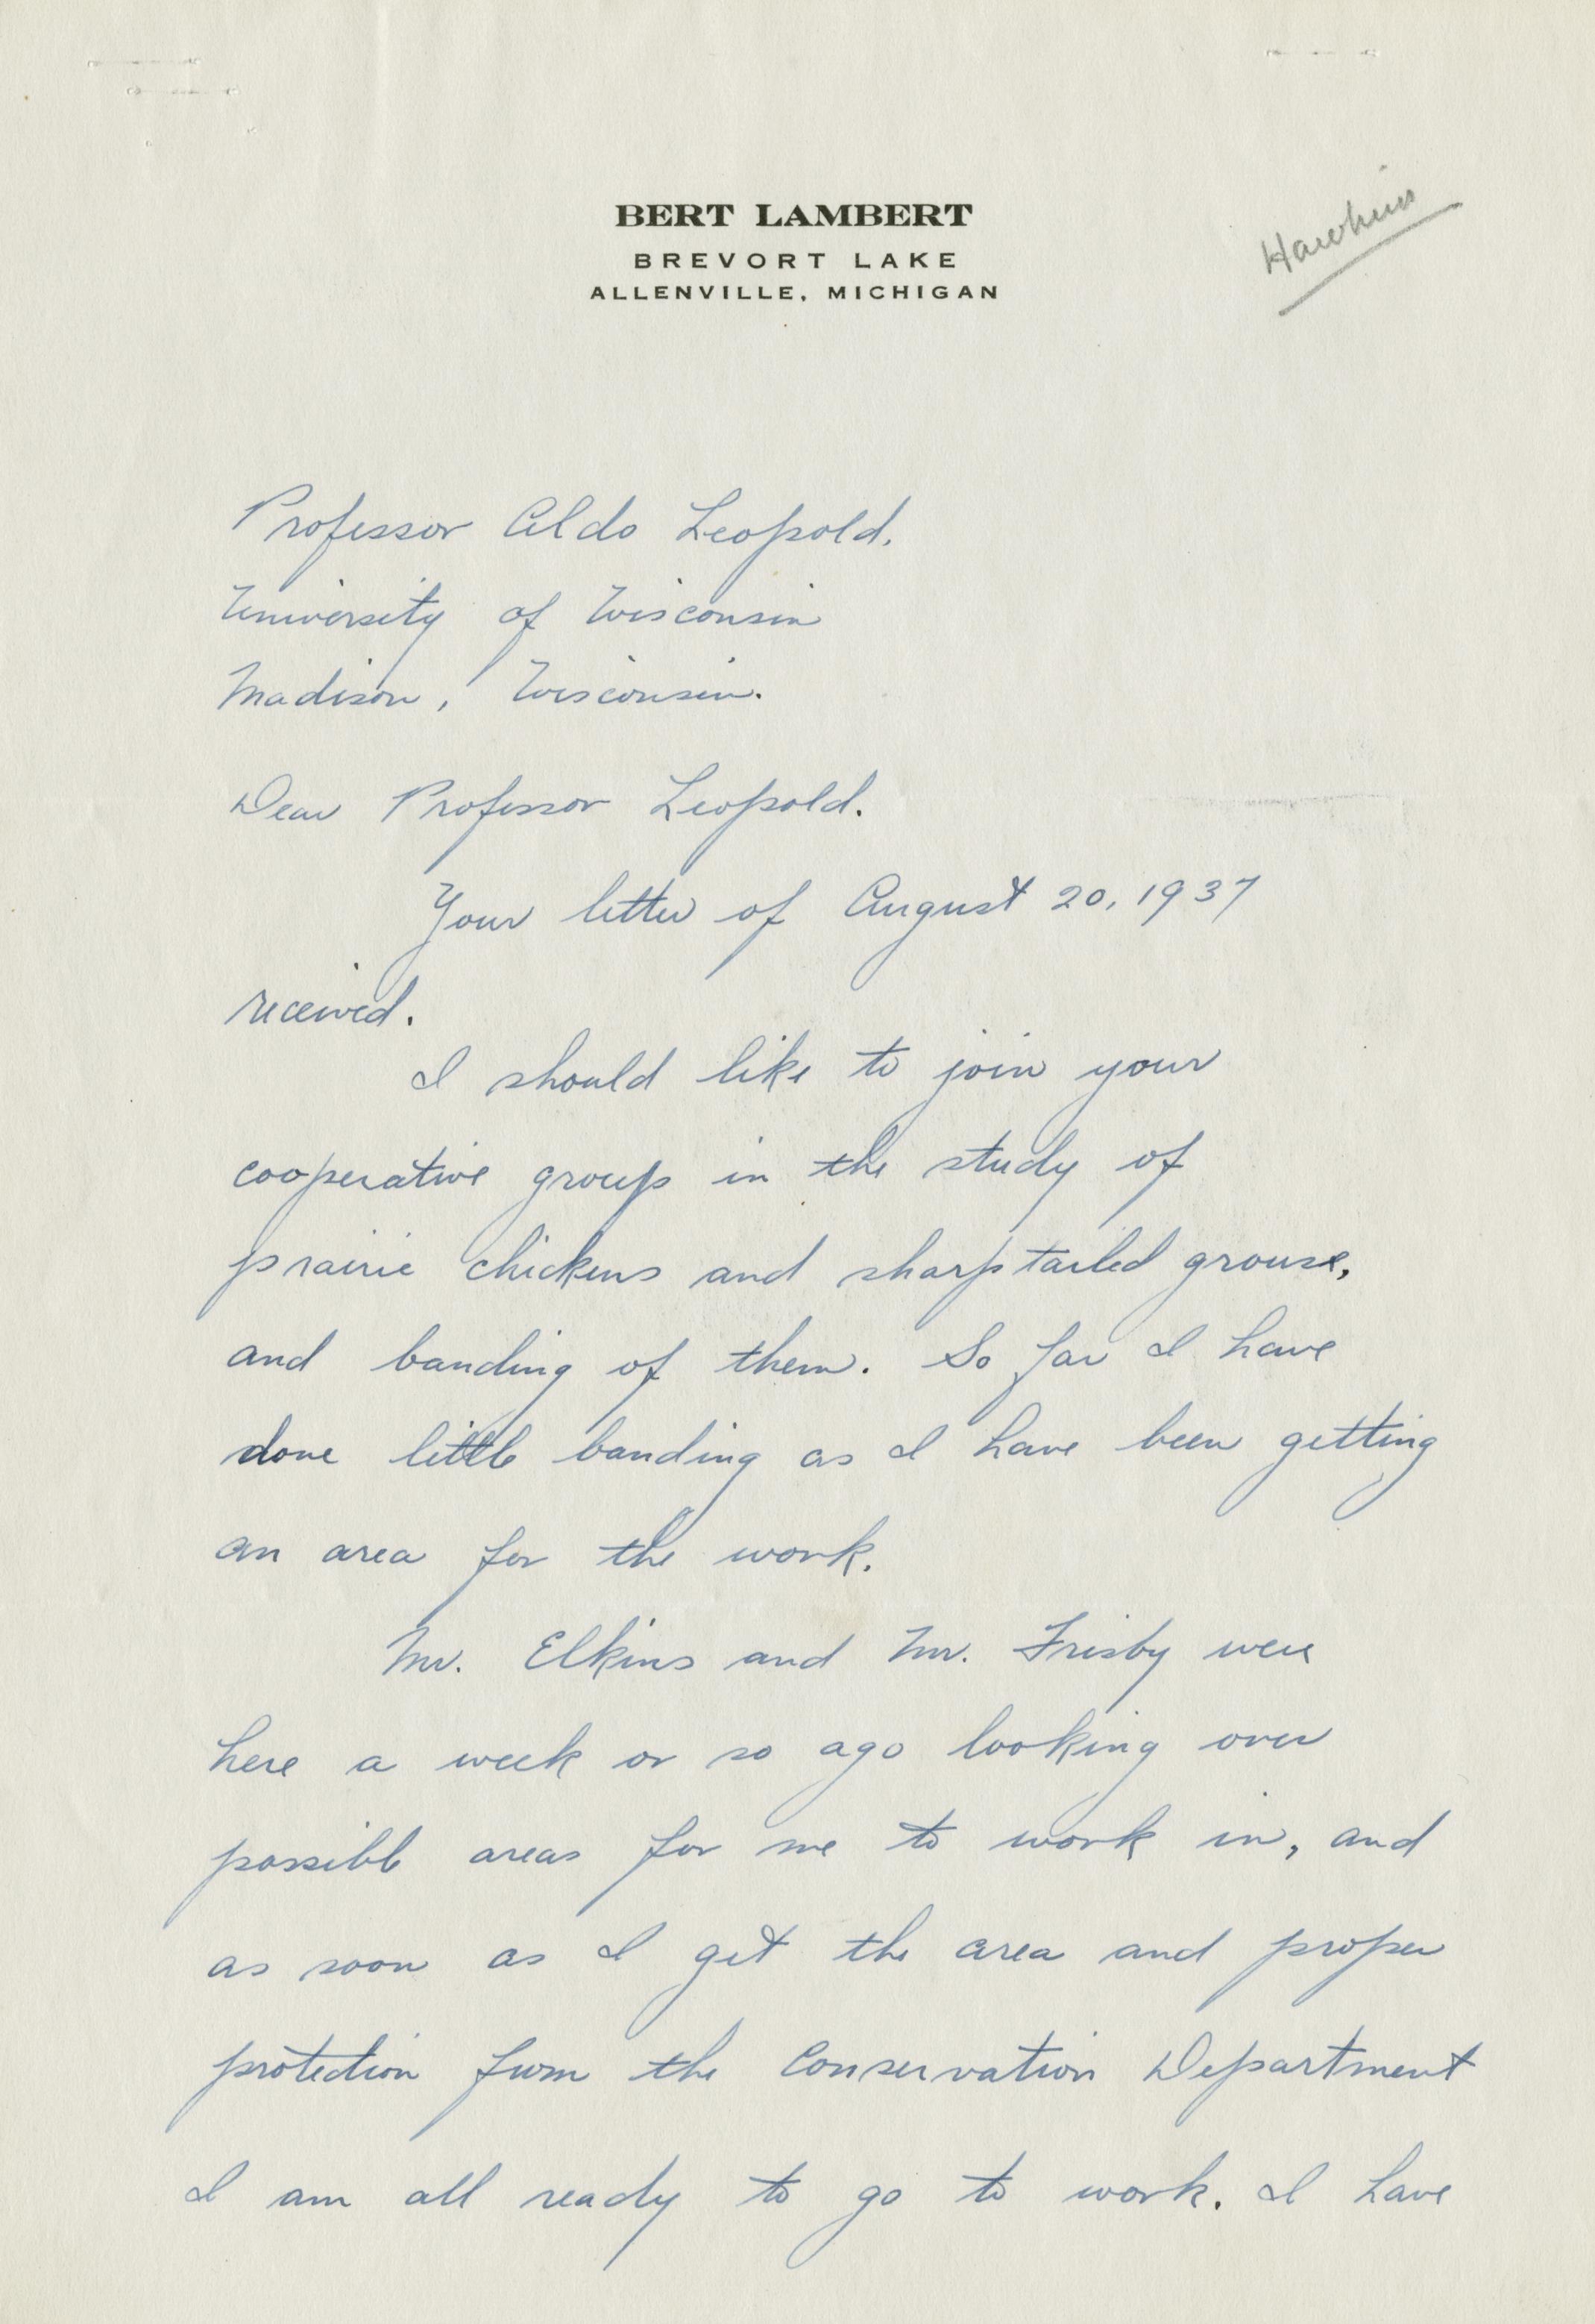 BERT LAMBERT
BREVORT LAKE
ALLENVILLE, MICHIGAN
Hawkins
Professor Aldo Leopold.
University of Wisconsin
Madison, Wisconsin.
Dear Professor Leopold.
Your letter of August 20, 1937
received.
I should like to join your
cooperative group in the study of
prairie chickens and sharptailed grouse,
and banding of them. So far I have
done little banding as I have been getting
an area for the work.
Mr. Elkins and Mr. Frisby were
here a week or so ago looking over
possible areas for me to work in, and
as soon as I get the area and proper
protection from the Conservation Department
I am all ready to go to work. I have